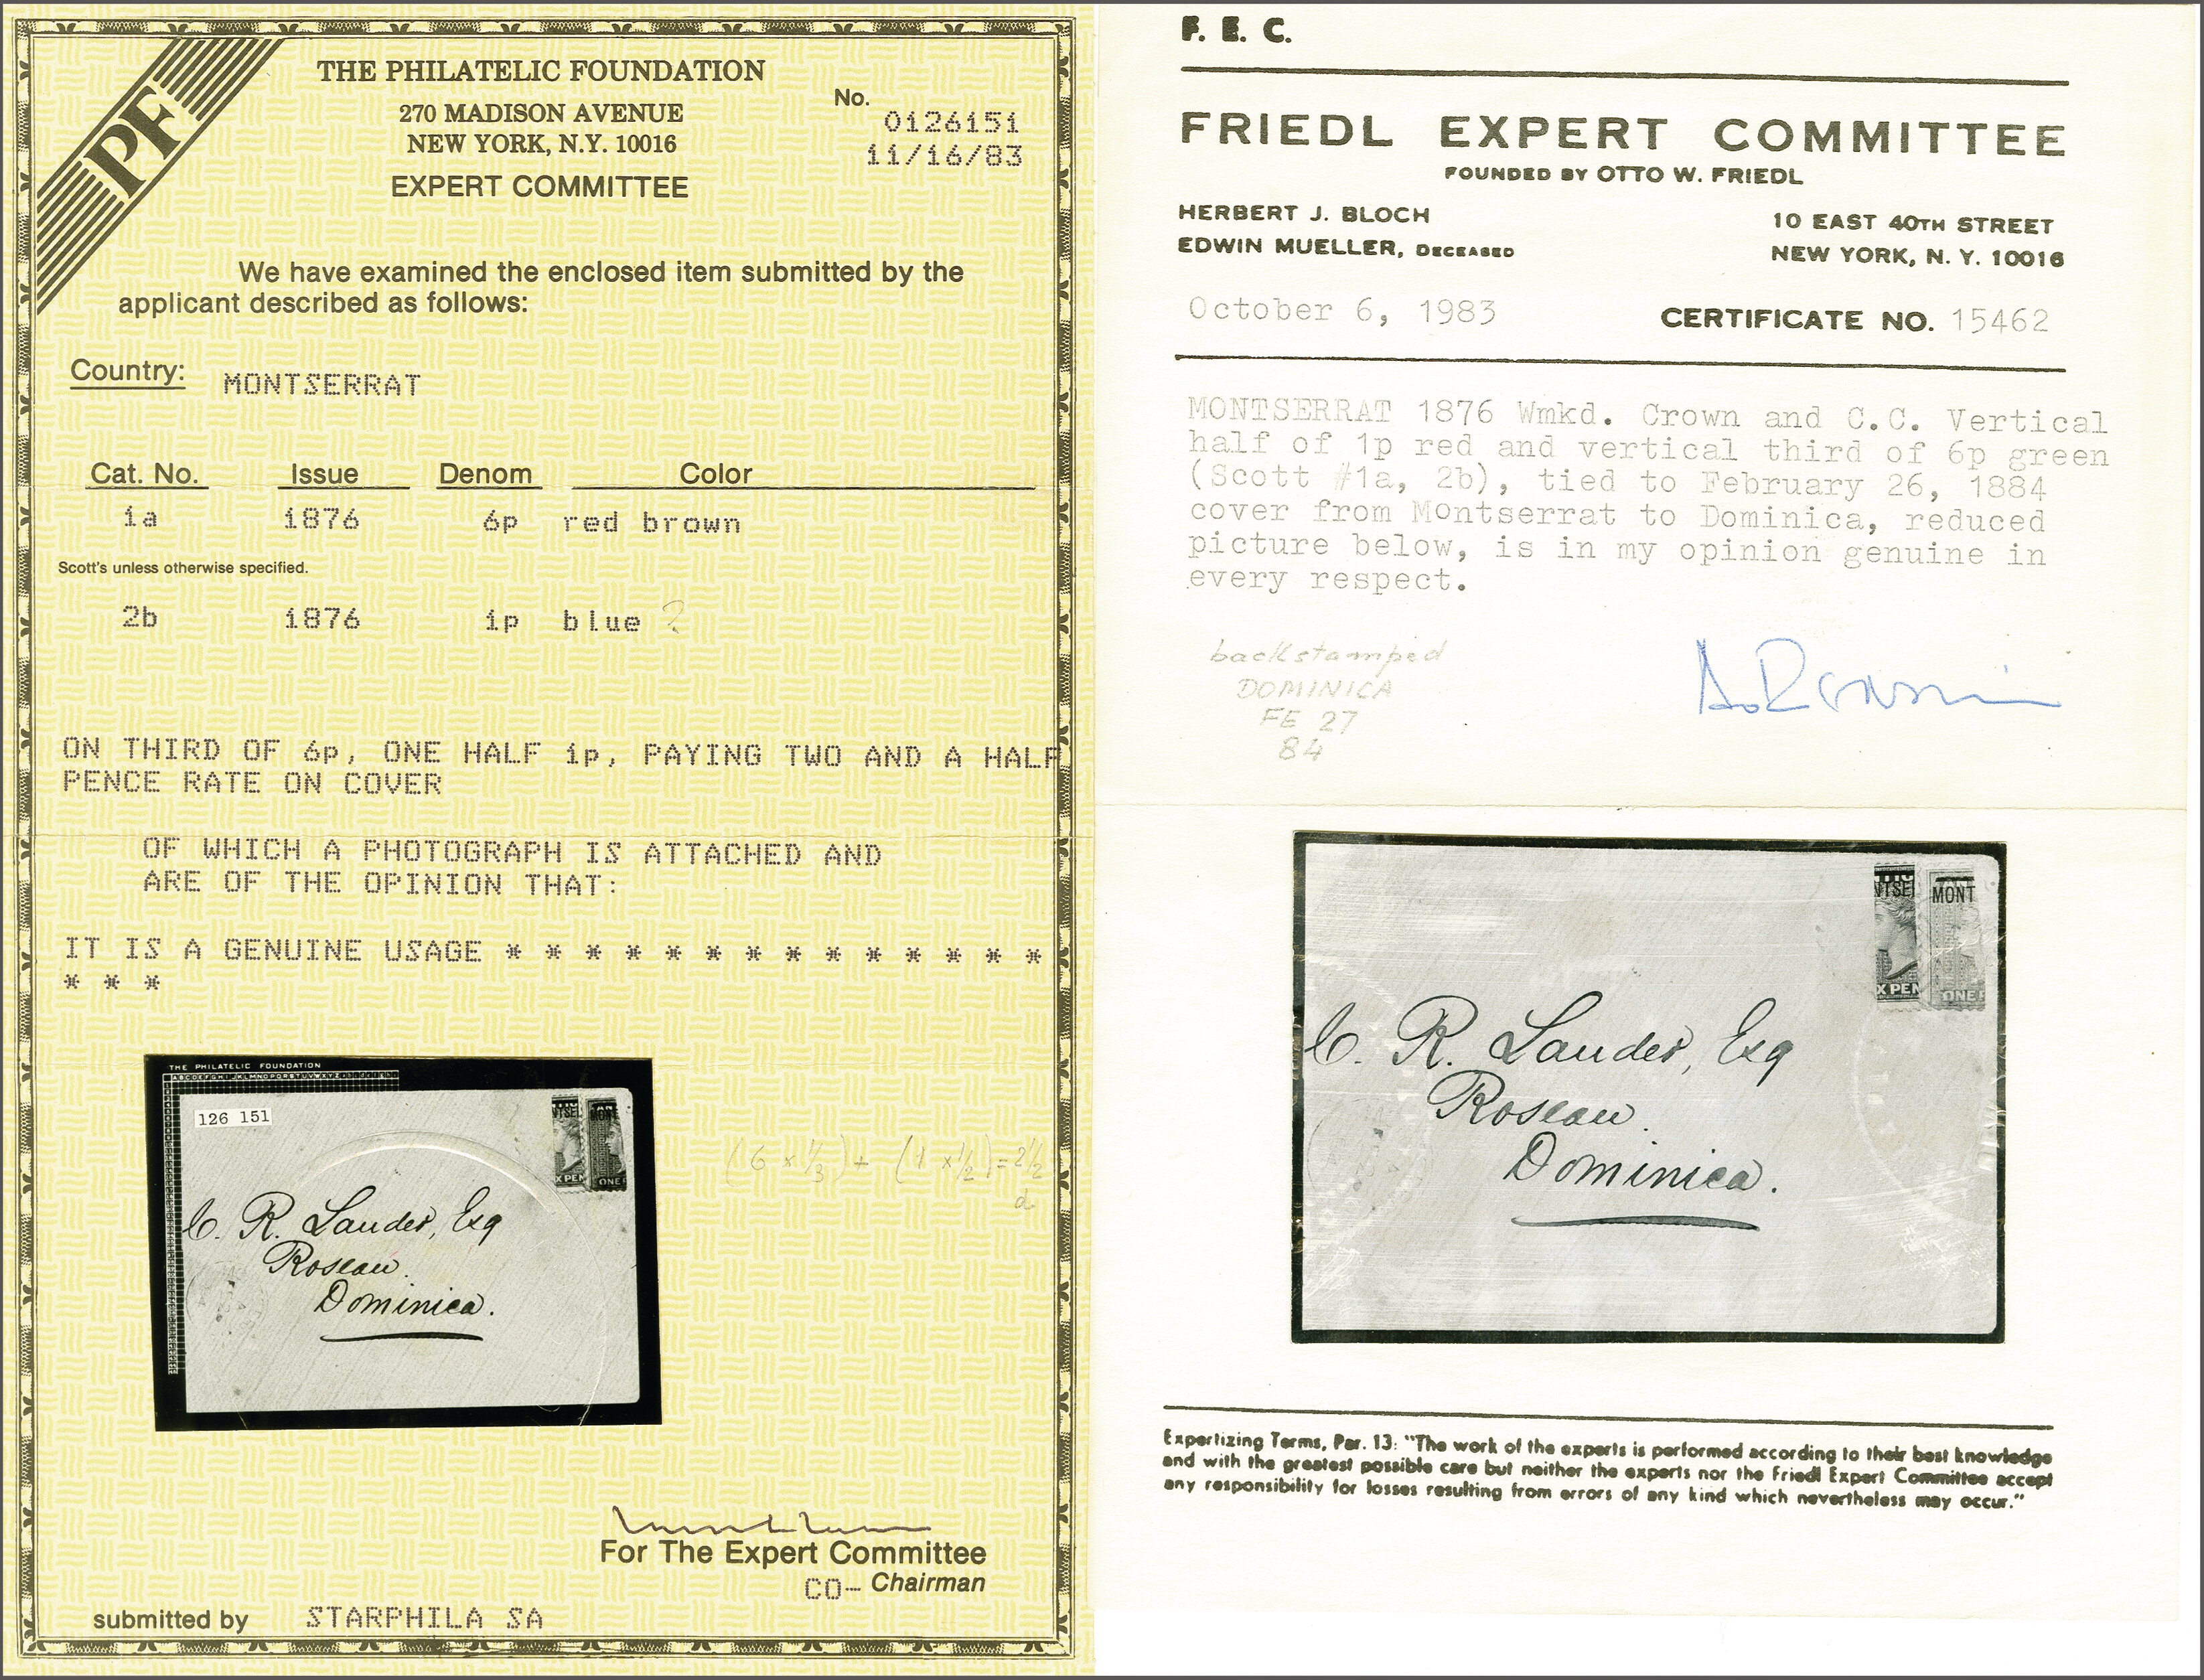 PF
THE PHILATELIC FOUNDATION
270 MADISON AVENUE
NEW YORK, N.Y. 10016
EXPERT COMMITTEE
No.
0126151
11/16/83
We have examined the enclosed item submitted by the
applicant described as follows:
Country: MONTSERRAT
Cat. No. Issue Denom Color
1a 1876 6p red brown
Scott's unless otherwise specified.
2b 1876 1p blue ?
ON THIRD OF 6p, ONE HALF 1p, PAYING TWO AND A HALF
PENCE RATE ON COVER
OF WHICH A PHOTOGRAPH IS ATTACHED AND
ARE OF THE OPINION THAT:
IT IS A GENUINE USAGE * * * * * * * * * * * * * *
* * *
THE PHILATELIC FOUNDATION
126 151
NTSE MONT
X PEN ONE
C. R. Lauder, Esq
Roseau.
Dominica.
(6 x 1/3) + (1 x 1/2) = 2 1/2
d
For The Expert Committee
CO- Chairman
submitted by STARPHILA SA
F. E. C.
FRIEDL EXPERT COMMITTEE
FOUNDED BY OTTO W. FRIEDL
HERBERT J. BLOCH
EDWIN MUELLER, DECEASED
10 EAST 40TH STREET
NEW YORK, N. Y. 10016
October 6, 1983
CERTIFICATE NO. 15462
MONTSERRAT 1876 Wmkd. Crown and C.C. Vertical
half of 1p red and vertical third of 6p green
(Scott #1a, 2b), tied to February 26, 1884
cover from Montserrat to Dominica, reduced
picture below, is in my opinion genuine in
every respect.
backstamped
DOMINICA
FE 27
84
NTSE MONT
X PEN ONE
C. R. Lauder, Esq
Roseau.
Dominica.
Expertizing Terms, Par. 13: "The work of the experts is performed according to their best knowledge
and with the greatest possible care but neither the experts nor the Friedl Expert Committee accept
any responsibility for losses resulting from errors of any kind which nevertheless may occur."